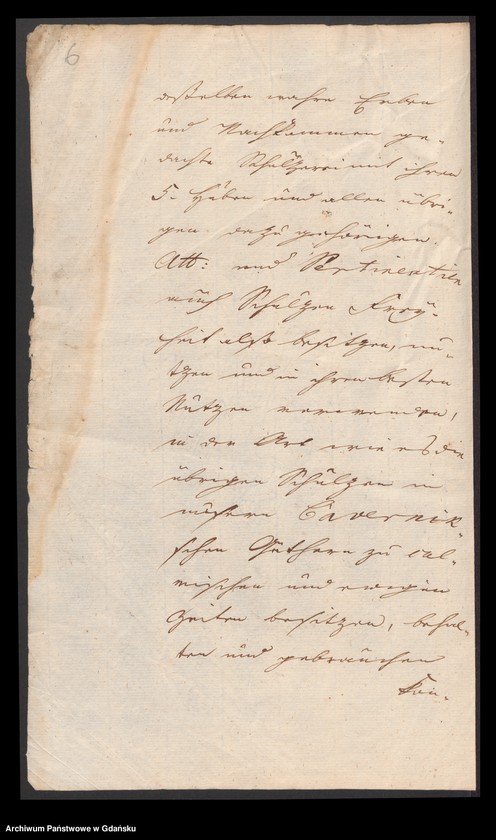 6
desselben wahre Erben
und Nachkommen ge-
dachte Schultzerei mit ihren
5. Huben und allen übri-
gen dazu gehörigen
Att: und Pertinentien
auch Schulzen Frey-
heit also besitzen, nu-
tzen und in ihren besten
Nutzen verwenden,
in der Art wie es die
übrigen Schulzen in
unsern Tavernik-
schen Güthern zu cul-
mischen und ewigen
Zeiten besitzen, behal-
ten und gebrauchen
kön-
Archiwum Państwowe w Gdańsku